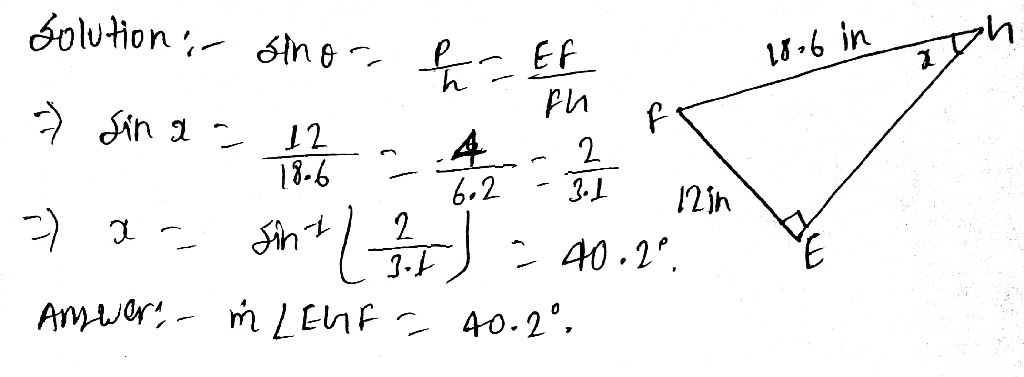 Solution :- sin θ = P/h = EF/Fh
⇒ sin x = 12/18.6 = 4/6.2 = 2/3.1
⇒ x = sin⁻¹ (2/3.1) = 40.2°.
Answer :- m ∠EhF = 40.2°.
18.6 in
h
x
F
12 in
E